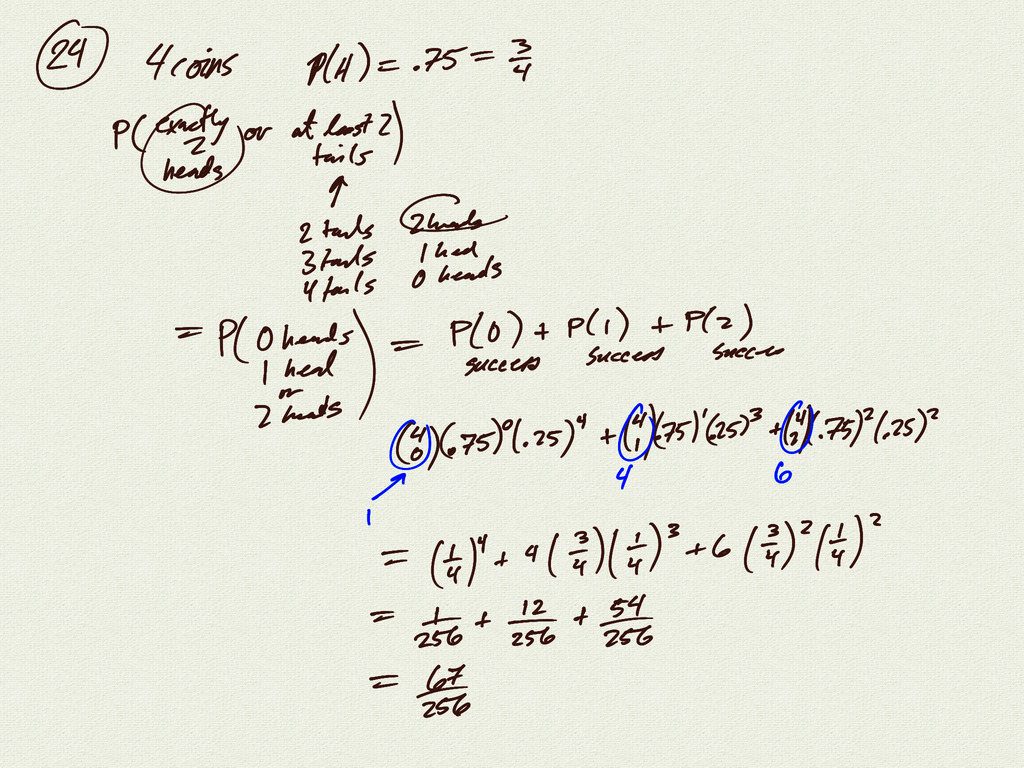 24 4 coins P(H) = .75 = 3/4
P(exactly 2 heads or at least 2 tails)
↑
2 tails 2 heads
3 tails 1 hed
4 tails 0 heads
= P(0 heads 1 head or 2 heads) = P(0) + P(1) + P(2)
success success success
(4 0)(.75)^0(.25)^4 + (4 1)(.75)^1(.25)^3 + (4 2)(.75)^2(.25)^2
1 4 6
= (1/4)^4 + 4(3/4)(1/4)^3 + 6(3/4)^2(1/4)^2
= 1/256 + 12/256 + 54/256
= 67/256